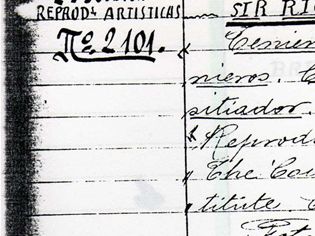 REPRODˢ. ARTISTICAS
Nº. 2101.
SIR RI
nieros.
sitiador.
Reprod
The Cou
titute